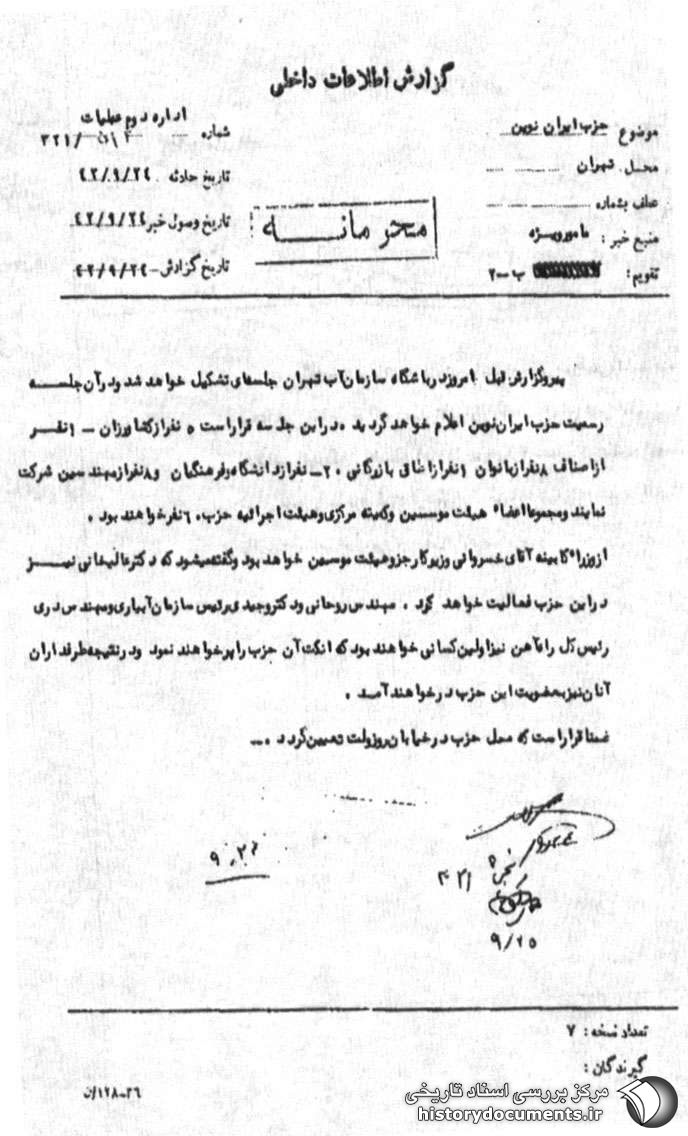 گزارش اطلاعات داخلی
موضوع حزب ایران نوین
محل تهران
عطف بشماره
منبع خبر: مامور ویژه
تقویم: ب -۲
محرمانه
اداره دوم عملیات
شماره ۳۲۱/
تاریخ حادثه ۴۲/۹/۲۴
تاریخ وصول خبر ۴۲/۹/۲۴
تاریخ گزارش - ۴۲/۹/۲۴
پیرو گزارش قبل امروز در باشگاه سازمان آب تهران جلسه‌ای تشکیل خواهد شد و در آن جلسه
رسمیت حزب ایران نوین اعلام خواهد گردید ۰ در این جلسه قرار است ۵ نفر از کشاورزان - ۱ نفر
از اصناف ۸ نفر از بانوان ۱ نفر از اطاق بازرگانی ۲۰- نفر از دانشگاه و فرهنگیان و ۸ نفر از مهندسین شرکت
نمایند و مجموعا اعضاء هیئت موسسین و کمیته مرکزی و هیئت اجرائیه حزب ۶۰ نفر خواهند بود ۰
از وزراء کابینه آقای خسروانی وزیر کار جزو هیئت موسسین خواهد بود و گفته میشود که دکتر عالیخانی نیز
در این حزب فعالیت خواهد کرد ۰ مهندس روحانی و دکتر وحیدی رئیس سازمان آبیاری و مهندس دری
رئیس کل راه‌آهن نیز اولین کسانی خواهند بود که انکت آن حزب را پر خواهند نمود و در نتیجه طرفداران
آنان نیز بعضویت این حزب در خواهند آمد ۰
ضمنا قرار است که محل حزب در خیابان روزولت تعیین گردد ۰-
۹/۲۵
تعداد نسخه: ۷
گیرندگان:
۱۲۸-۲۶/ن
مرکز بررسی اسناد تاریخی
historydocuments.ir